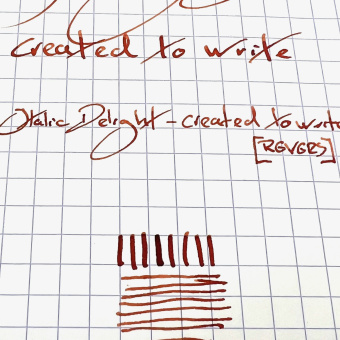 created to write
Italic Delight - created to write
[REVERS]